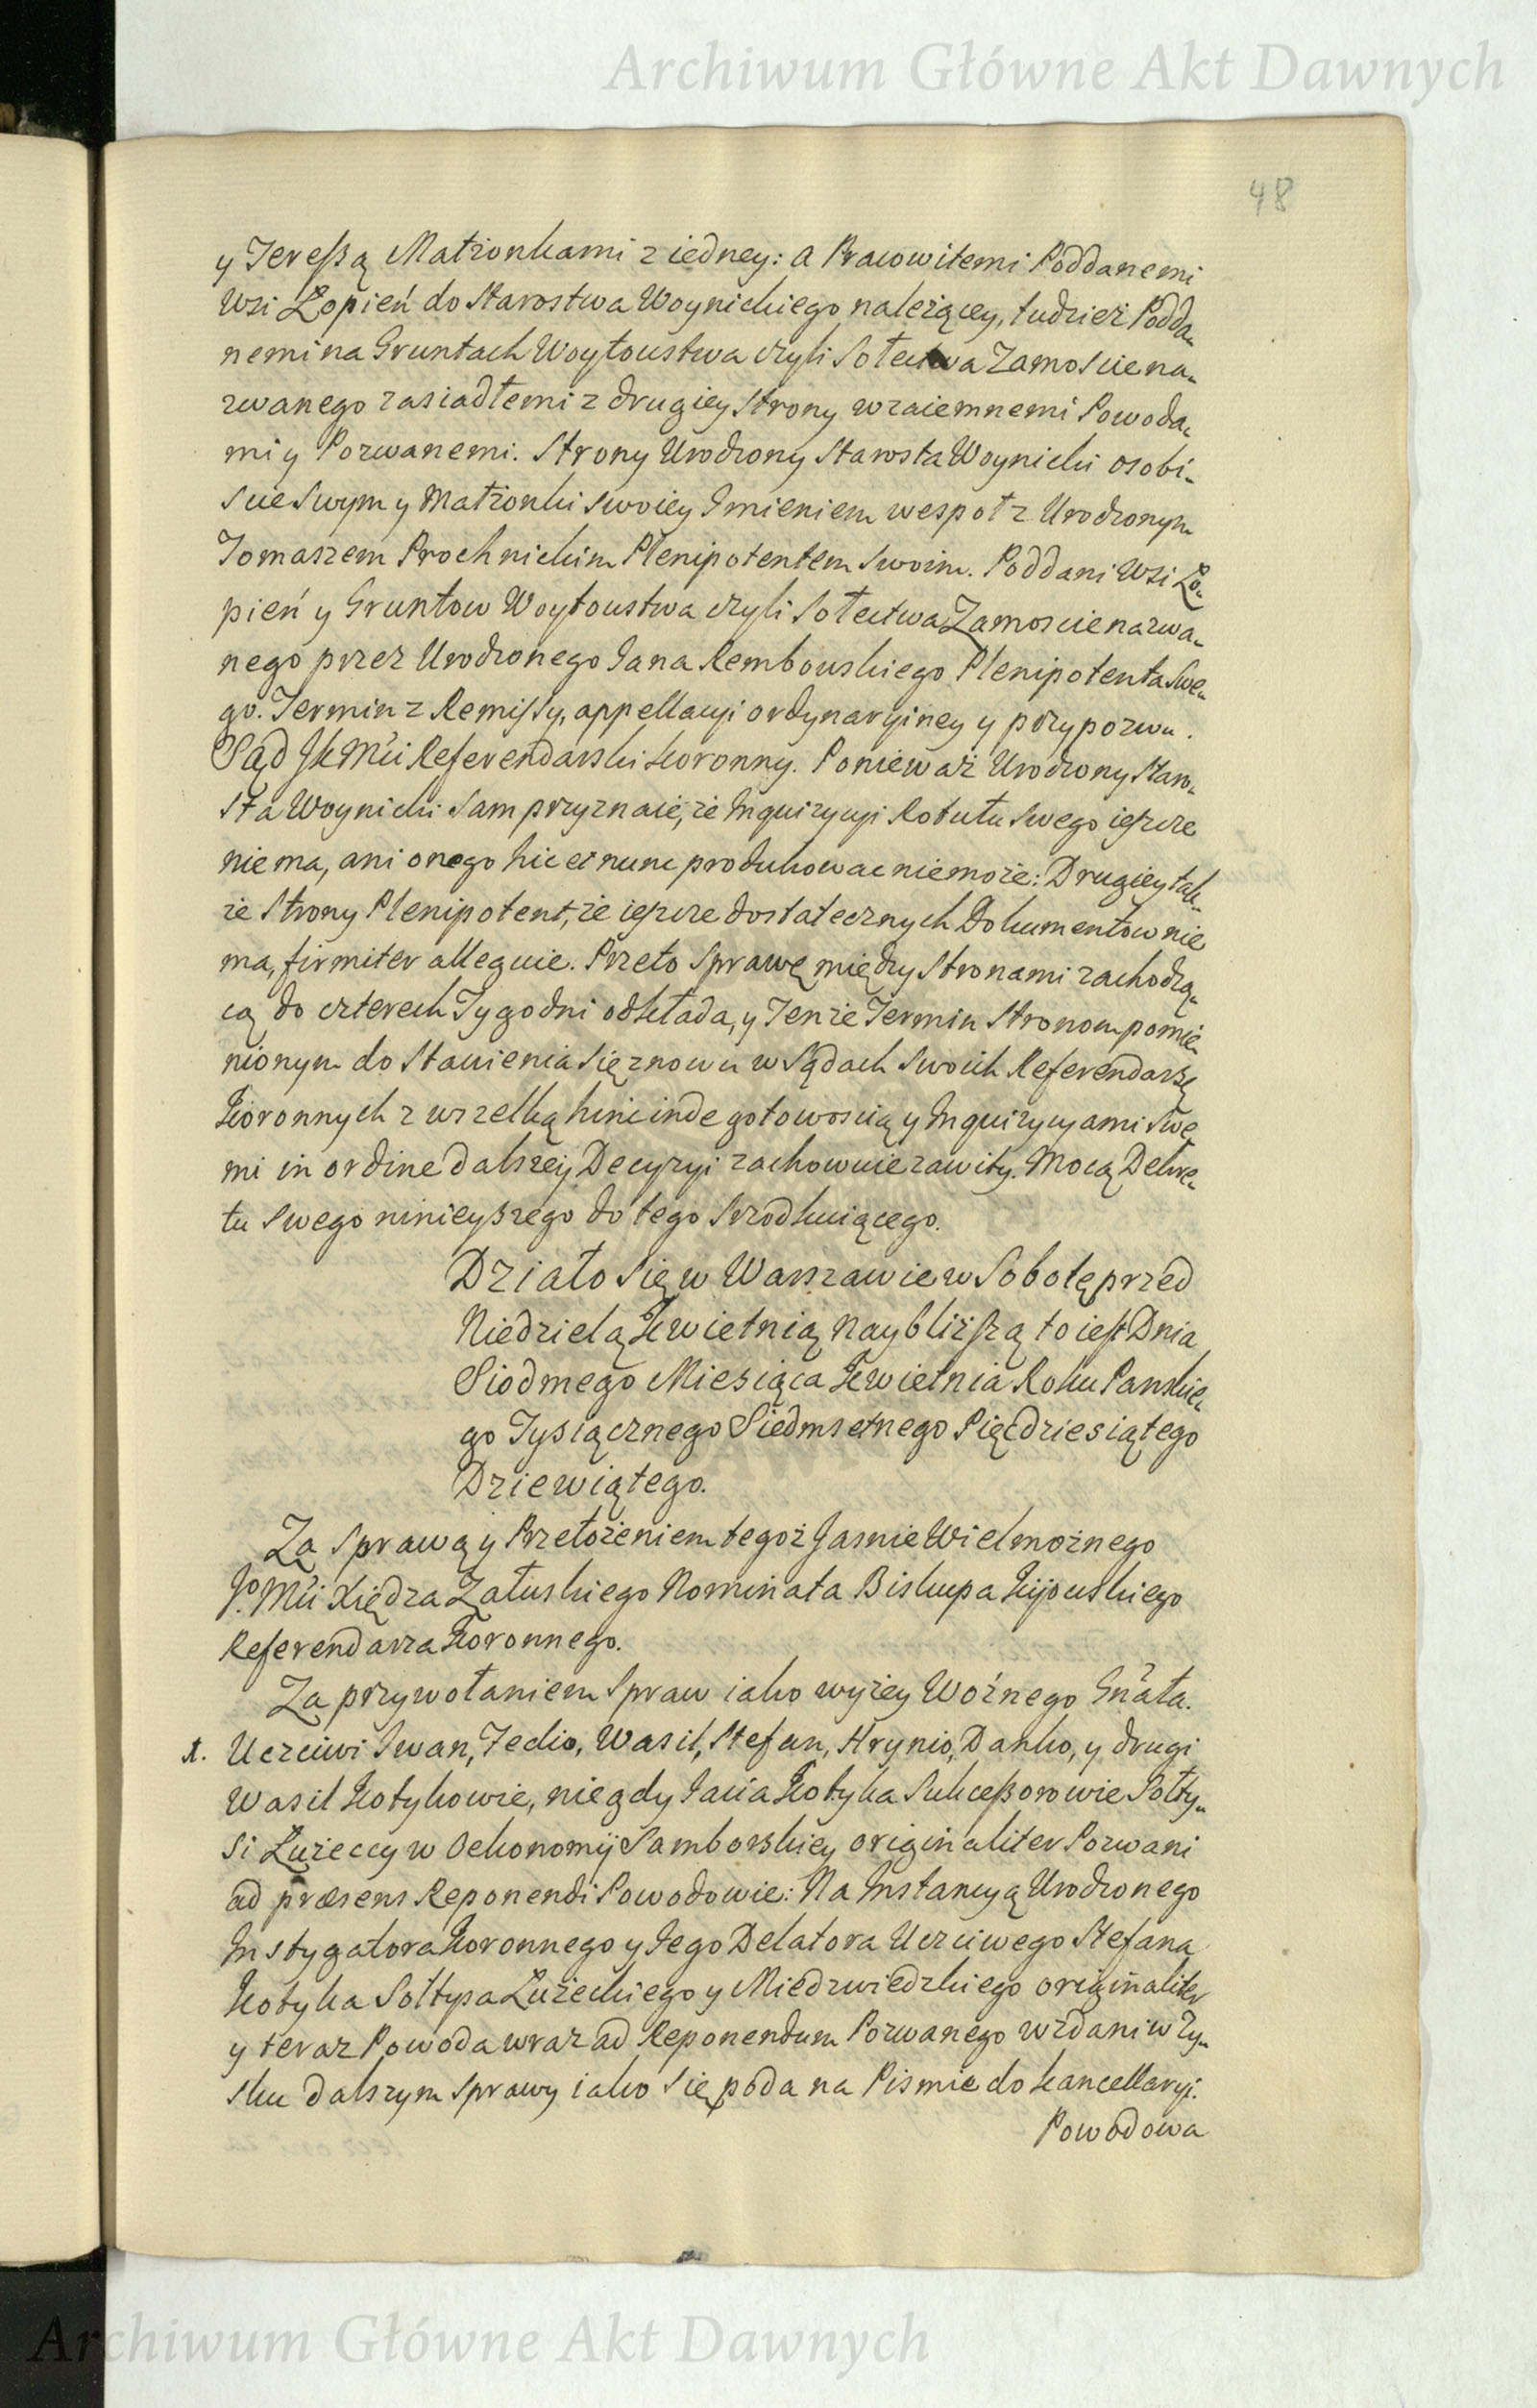 Archiwum Główne Akt Dawnych
48
y Tereßą Małżonkami z iedney: a Pracowitemi Poddanemi
Wsi Łopień do Starostwa Woynickiego należącey, tudzież Podda-
nemi na Gruntach Woytowstwa czyli Sołectwa Zamoscie na-
zwanego zasiadłemi z drugiey strony wzaiemnemi Powoda-
mi y Pozwanemi. Strony Urodzony Starosta Woynicki osobi-
scie Swym y Małżonki swoiey Imieniem wespoł z Urodzonym
Tomaszem Prochnickim Plenipotentem Swoim. Poddani Wsi Ło-
pień y Gruntow Woytowstwa czyli Sołectwa Zamoscie nazwa-
nego przez Urodzonego Jana Rembowskiego Plenipotenta Swe-
go. Termin z Remissy, appellacyi ordynaryiney y przypozwu.
Sąd JK Mci Referendarski Koronny. Ponieważ Urodzony Staro-
sta Woynicki sam przyznaie, że Inquizycyi Rotułu Swego ieszcze
niema, ani onego hic et nunc produkowac niemoże: Drugiey tak-
że Strony Plenipotent, że ieszcze dostatecznych Dokumentow nie
ma, firmiter alleguie. Przeto Sprawę między Stronami zachodzą-
cą do czterech Tygodni odkłada, y Tenże Termin Stronom pomie-
nionym do Stawienia się znowu w Sądach Swoich Referendarſ-
Koronnych z wszelką hinc inde gotowoscią y Inquizycyami Swe-
mi in ordine dalszey Decyzyi zachowuie zawity. Mocą Dekre-
tu Swego ninieyszego do tego Srzodkuiącego.
Działo się w Warszawie w Sobotę przed
Niedzielą Kwietnią naybliższą to iest Dnia
Siodmego Miesiąca Kwietnia Roku Panskie-
go Tysiącznego Siedmsetnego Pięćdziesiątego
Dziewiątego.
Za Sprawą y Przełożeniem tegoż Jasnie Wielmożnego
Jo. Mci Xiędza Załuskiego Nominata Biskupa Kijowskiego
Referendarza Koronnego.
Za przywołaniem Spraw iako wyżey Woźnego Gnata.
1. Uczciwi Iwan, Fedio, Wasil, Stefan, Hrynio, Danko, y drugi
Wasil Kotykowie, niegdy Jacia Kotyka Sukceßorowie Sołty-
si Łużeccy w Oekonomij Samborskiey originaliter Pozwani
ad præsens Reponendi Powodowie: Na Instancyą Urodzonego
Instygatora Koronnego y Jego Delatora Uczciwego Stefana
Kotyka Sołtysa Łużeckiego y Miedzwiedzkiego originaliter
y teraz Powoda wraz ad Reponendum Pozwanego wzdani w Zy-
sku dalszym Sprawy iako się poda na Pismie do Kancellaryi.
Powodowa
Archiwum Główne Akt Dawnych